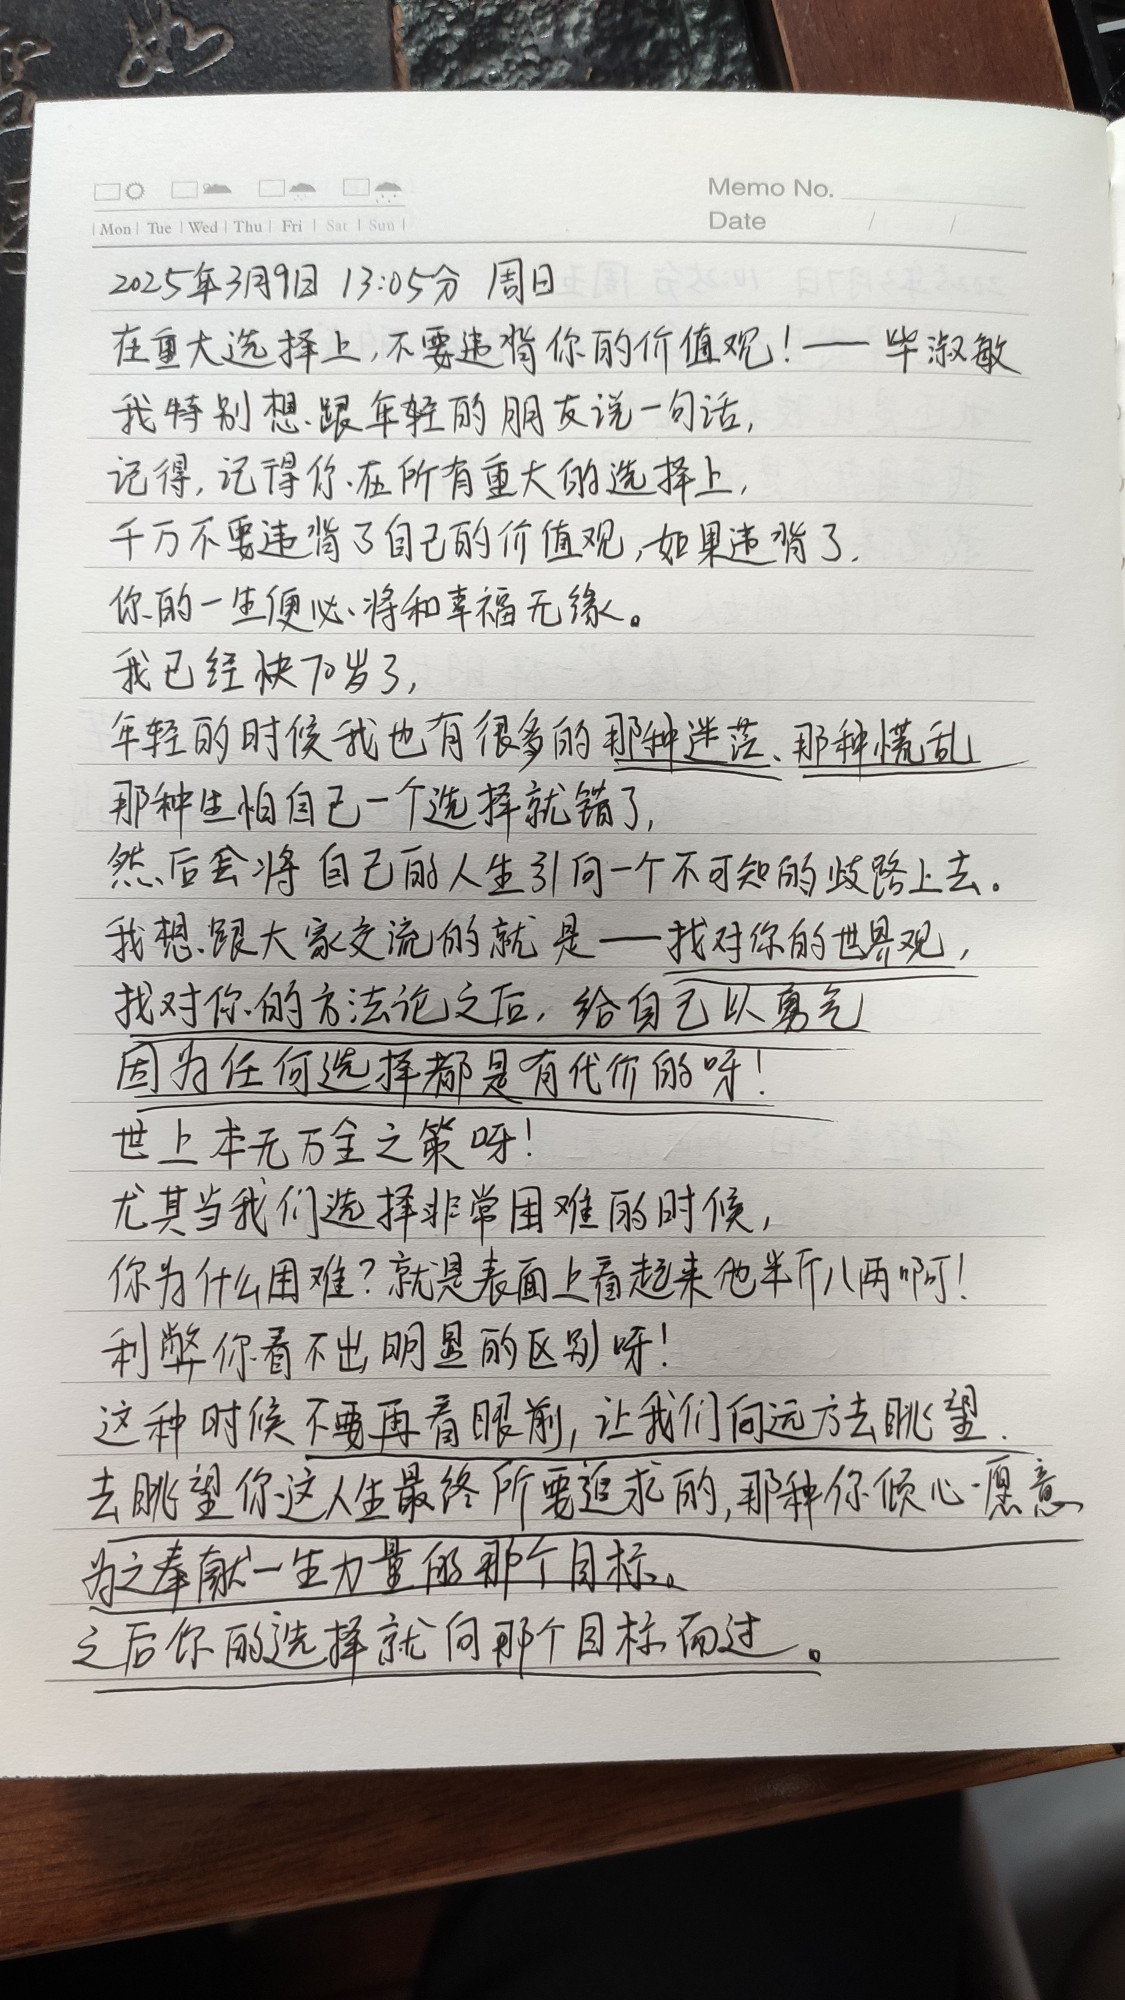 如
Memo No.
Mon Tue Wed Thu Fri Sat Sun
Date / /
2025年3月9日 13:05分 周日
在重大选择上,不要违背你的价值观!——毕淑敏
我特别想跟年轻的朋友说一句话,
记得,记得你在所有重大的选择上,
千万不要违背了自己的价值观,如果违背了.
你的一生便必将和幸福无缘。
我已经快70岁了,
年轻的时候我也有很多的那种迷茫、那种慌乱
那种生怕自己一个选择就错了,
然后会将自己的人生引向一个不可知的歧路上去。
我想跟大家交流的就是——找对你的世界观,
找对你的方法论之后,给自己以勇气
因为任何选择都是有代价的呀!
世上本无万全之策呀!
尤其当我们选择非常困难的时候,
你为什么困难?就是表面上看起来他半斤八两啊!
利弊你看不出明显的区别呀!
这种时候不要再看眼前,让我们向远方去眺望.
去眺望你这人生最终所要追求的,那种你倾心愿意
为之奉献一生力量的那个目标。
之后你的选择就向那个目标而过。